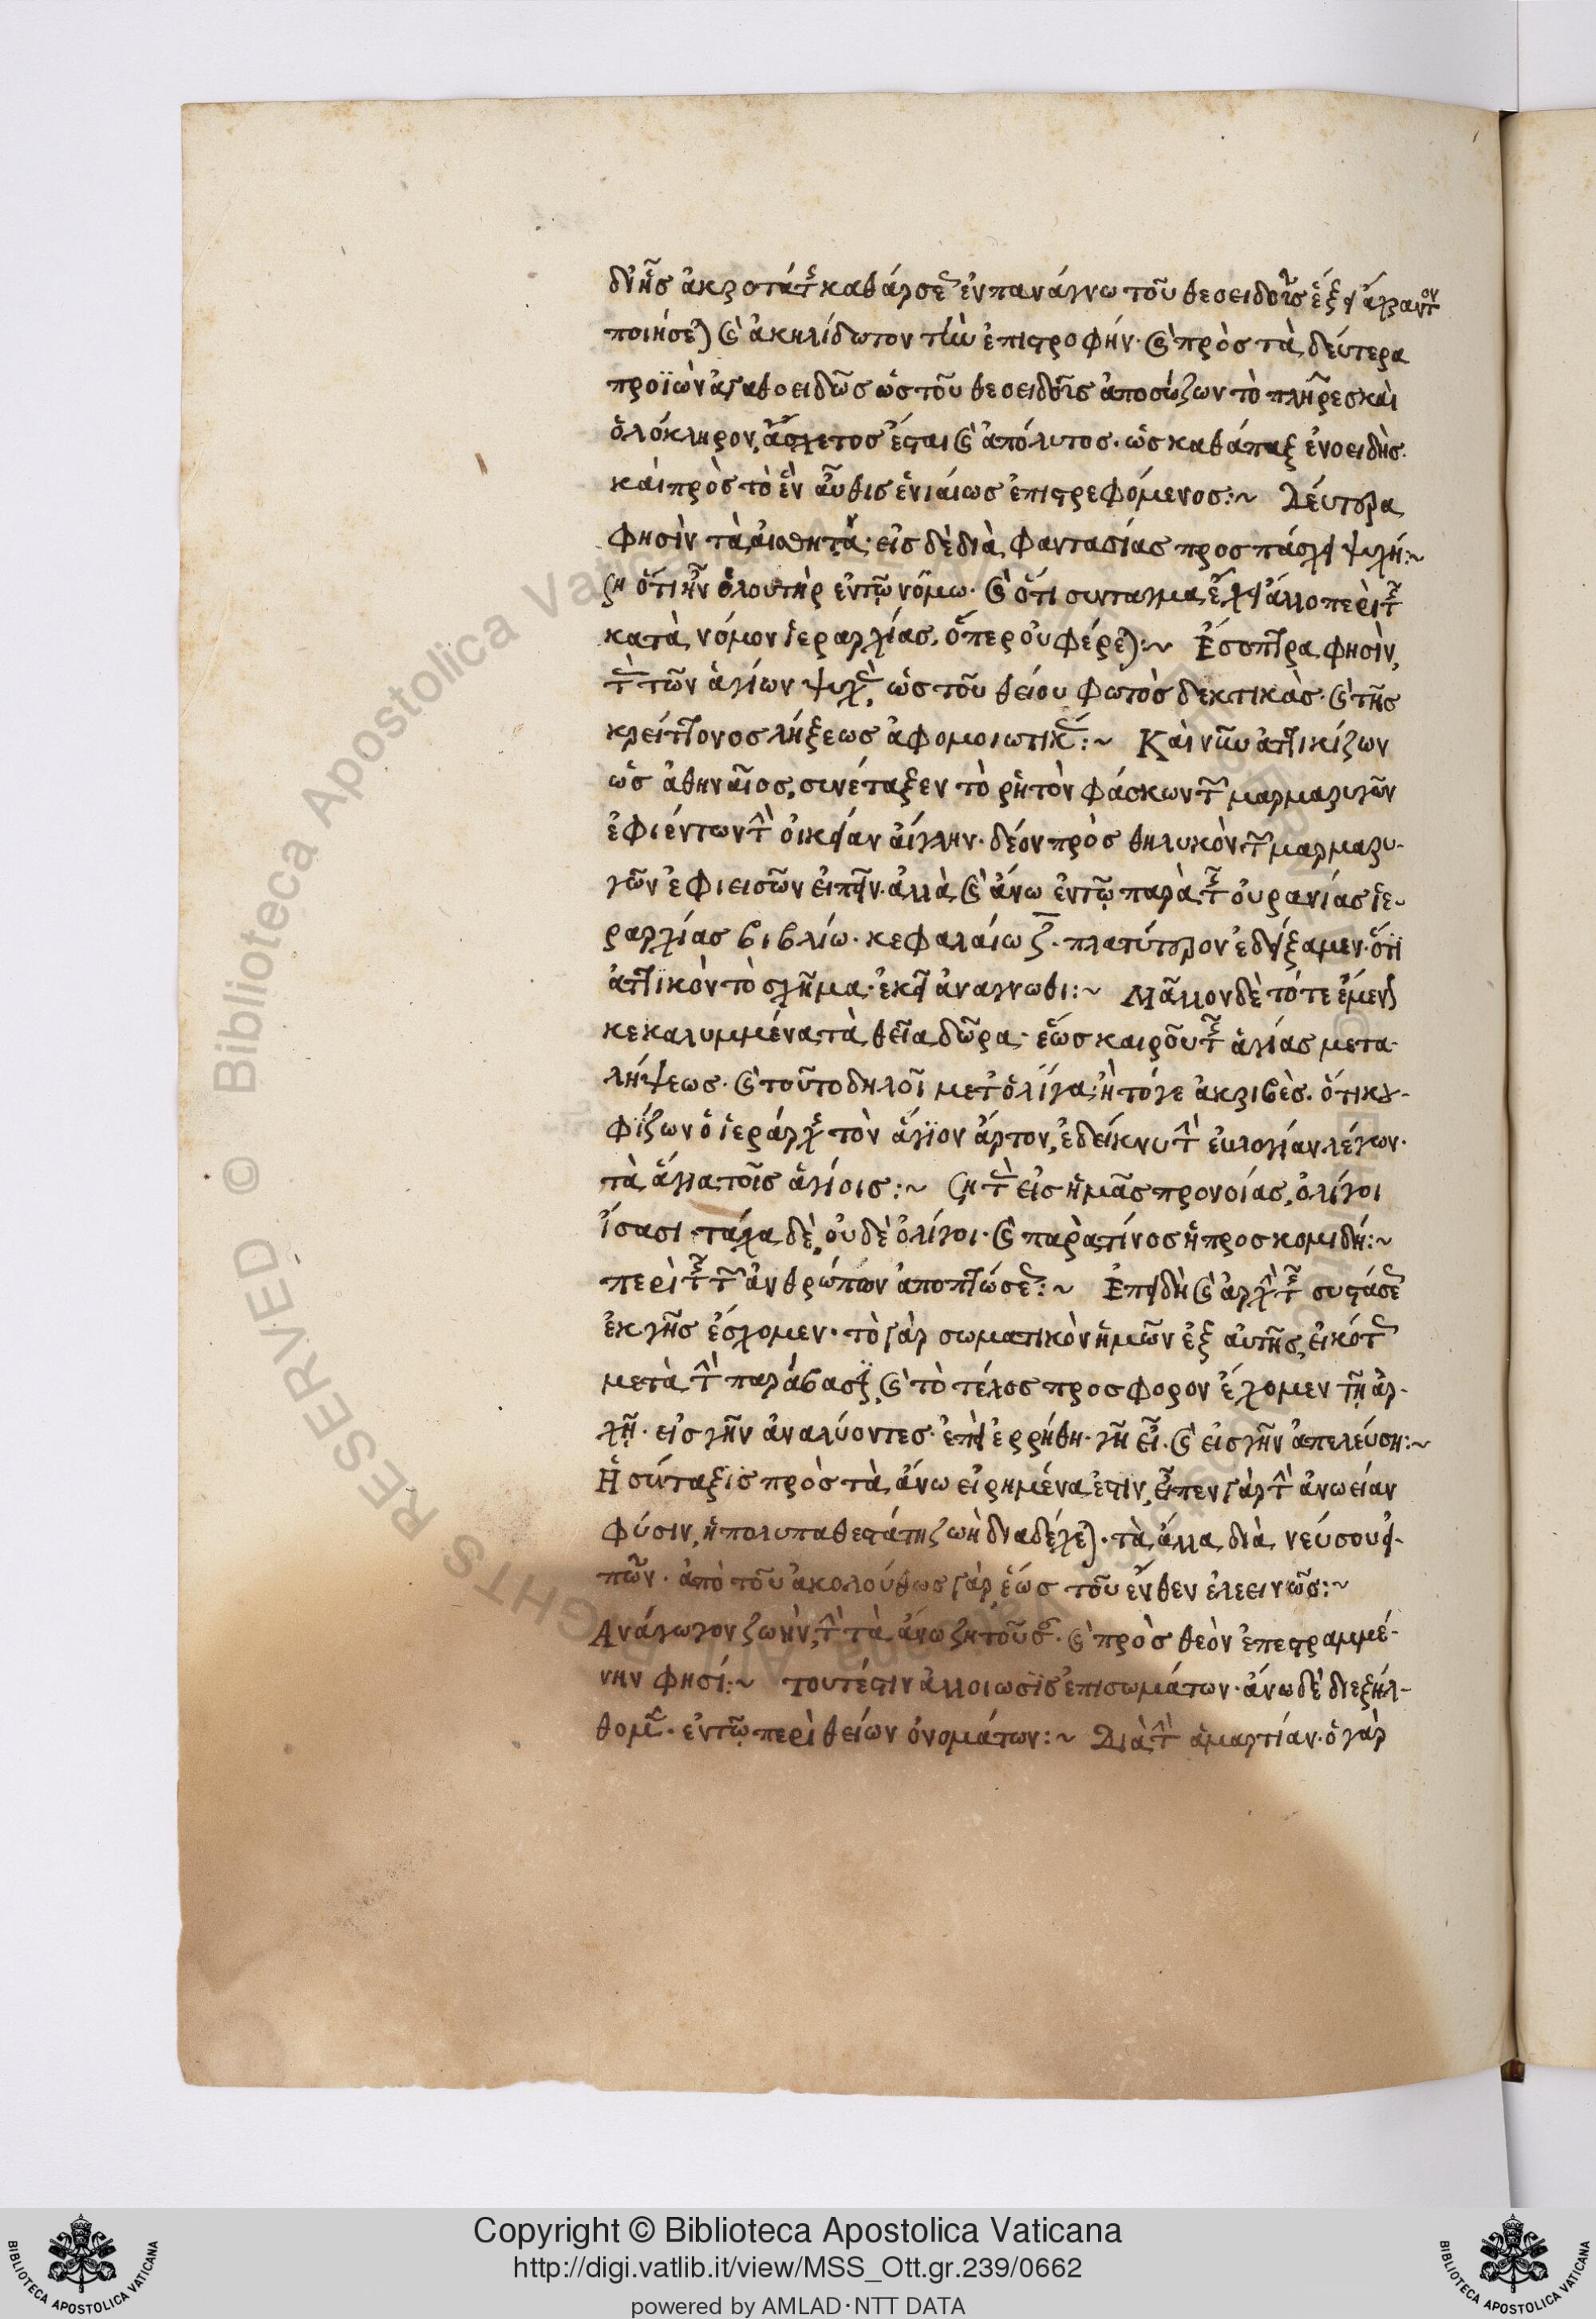 δι' ἧς ἀκροτάτης καθάρσεως ἐν παναγνω τοῦ θεοειδοῦς ἕξει ἀχραντον
ποιήσεται καὶ ἀκηλίδωτον τὴν ἐπιστροφήν· καὶ πρὸς τὰ δεύτερα
προϊὼν ἀγαθοειδῶς ὡς τοῦ θεοειδοῦς ἀποσώζων τὸ πλῆρες καὶ
ὁλόκληρον, ἄσχετος ἔσται καὶ ἀπόλυτος· ὡς καθάπαξ ἑνοειδὴς·
καὶ πρὸς τὸ ἓν αὖθις ἑνιαίως ἐπιστρεφόμενος:~ Δεύτερα
φησὶν τὰ αἰσθητὰ· εἰς δὲ διὰ φαντασίας προσπάσχει ψυχή:~
ση ὅτι ἦν ὁ λουτὴρ ἐν τῷ νόμω· καὶ ὅτι συνταγμα εἶχεν ἄλλο περὶ τῆς
κατὰ νόμον ἱεραρχίας, ὅπερ οὐ φέρεται:~ Ἔσοπτρα φησὶν,
τὰς τῶν ἁγίων ψυχὰς, ὡς τοῦ θείου φωτὸς δεκτικὰς· καὶ τῆς
κρείττονος λήξεως ἀφομοιωτικάς:~ Καὶ νῦν ἀττικίζων
ὡς ἀθηναῖος, συνέταξεν τὸ ῥητὸν φάσκων τῶν μαρμαρυγῶν
ἐφιέντων τὴν οἰκείαν αἴγλην· δέον πρὸς θηλυκὸν τῶν μαρμαρυ-
γῶν ἐφιεισῶν εἰπεῖν· ἀλλὰ καὶ ἄνω ἐν τῷ παρὰ τῆς οὐρανίας ἱε-
ραρχίας βιβλίω· κεφαλαίω ζ· πλατύτερον ἐδείξαμεν· ὅτι
ἀττικὸν τὸ σχῆμα· ἐκεῖ ἀναγνωθι:~ Μᾶλλον δὲ τότε ἔμενον
κεκαλυμμένα τὰ θεῖα δῶρα· ἕως καιροῦ τῆς ἁγίας μετα-
λήψεως· καὶ τοῦτο δηλοῖ μετ' ὀλίγα· ἢ τόγε ἀκριβὲς· ὅτι κου-
φίζων ὁ ἱεράρχης τὸν ἅγϊον ἄρτον, ἐδείκνυ τὴν εὐλογίαν λέγων·
τὰ ἅγια τοῖς ἁγίοις:~ ση τὰς εἰς ἡμᾶς προνοίας, ὀλίγοι
ἴσασι· τάχα δὲ οὐδὲ ὀλίγοι· καὶ παρὰ τίνος ἡ προσκομιδή:~
περὶ τῆς τῶν ἀνθρώπων ἀποπτώσεως:~ Ἐπειδὴ καὶ ἀρχὴν τῆς συστάσεως
ἐκ γῆς ἔσχομεν· τὸ γὰρ σωματικὸν ἡμῶν ἐξ αὐτῆς, εἰκότως
μετὰ τὴν παράβασϊν, καὶ τὸ τέλος προσφορον ἔχομεν τῇ ἀρ-
χῇ· εἰς γῆν ἀναλύοντες· ἐπεὶ ἐρρήθη· γῆ εἶ· καὶ εἰς γῆν ἀπελεύση:~
Ἡ σύνταξις πρὸς τὰ ἄνω εἰρημένα ἐστιν, εἶπεν γὰρ τὴν ἀνωείαν
φύσιν, ἡ πολυπαθεστάτη ζωὴ διαδέχεται· τὰ ἄλλα διὰ
πῶν· ἀπὸ τοῦ ἀκολούθως γὰρ, ἕως τοῦ ἔνθεν ἐλεεινῶς:~
Ἀνάγωγον ζωὴν, τὴν τὰ ἄνω ζητοῦσαν· καὶ πρὸς θεὸν ἐπεστραμμέ-
νην φησί:~ τουτέστιν ἀλλοιωσϊς ἐπι σωμάτων· ἄνω δὲ διεξήλ-
θομεν· ἐν τῷ περὶ θείων ὀνομάτων:~ Διὰ τὴν ἁμαρτίαν· ὁ γὰρ
Copyright © Biblioteca Apostolica Vaticana
http://digi.vatlib.it/view/MSS_Ott.gr.239/0662
powered by AMLAD·NTT DATA